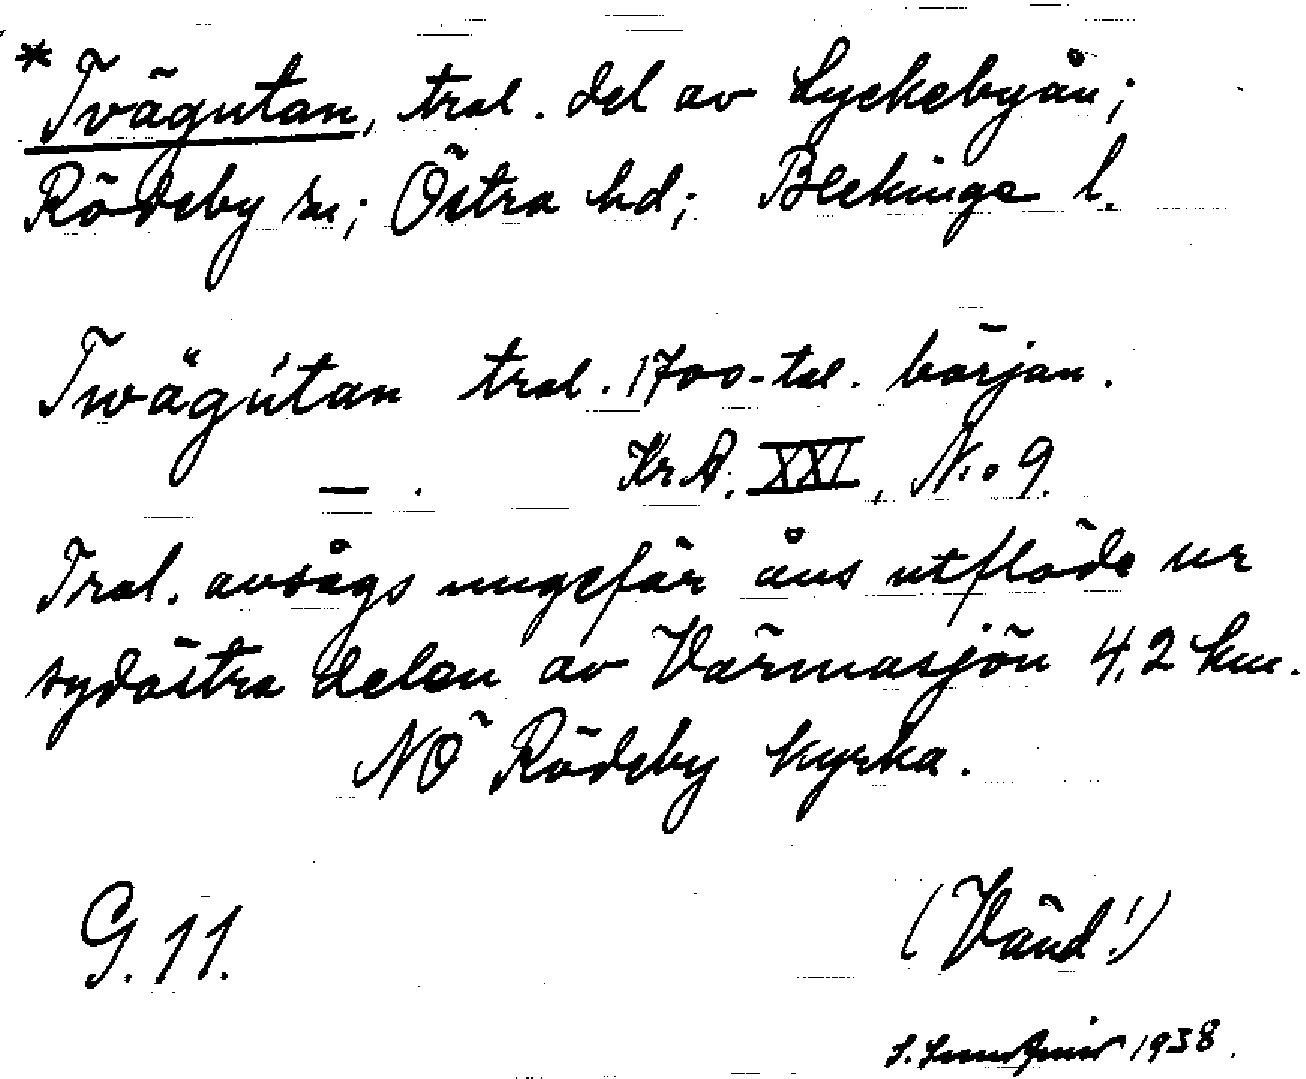 * Tvägutan, trol. del av Lyckebyån;
Rödeby sn; Östra hd; Blekinge l.
Twägútan trol. 1700-tal. början.
Kr.A. XXI, No 9.
Trol. avsågs ungefär åns utflöde ur
sydöstra delen av Värmasjön 4,2 km.
NÖ Rödeby kyrka.
G. 11.
(Vänd!)
1938.